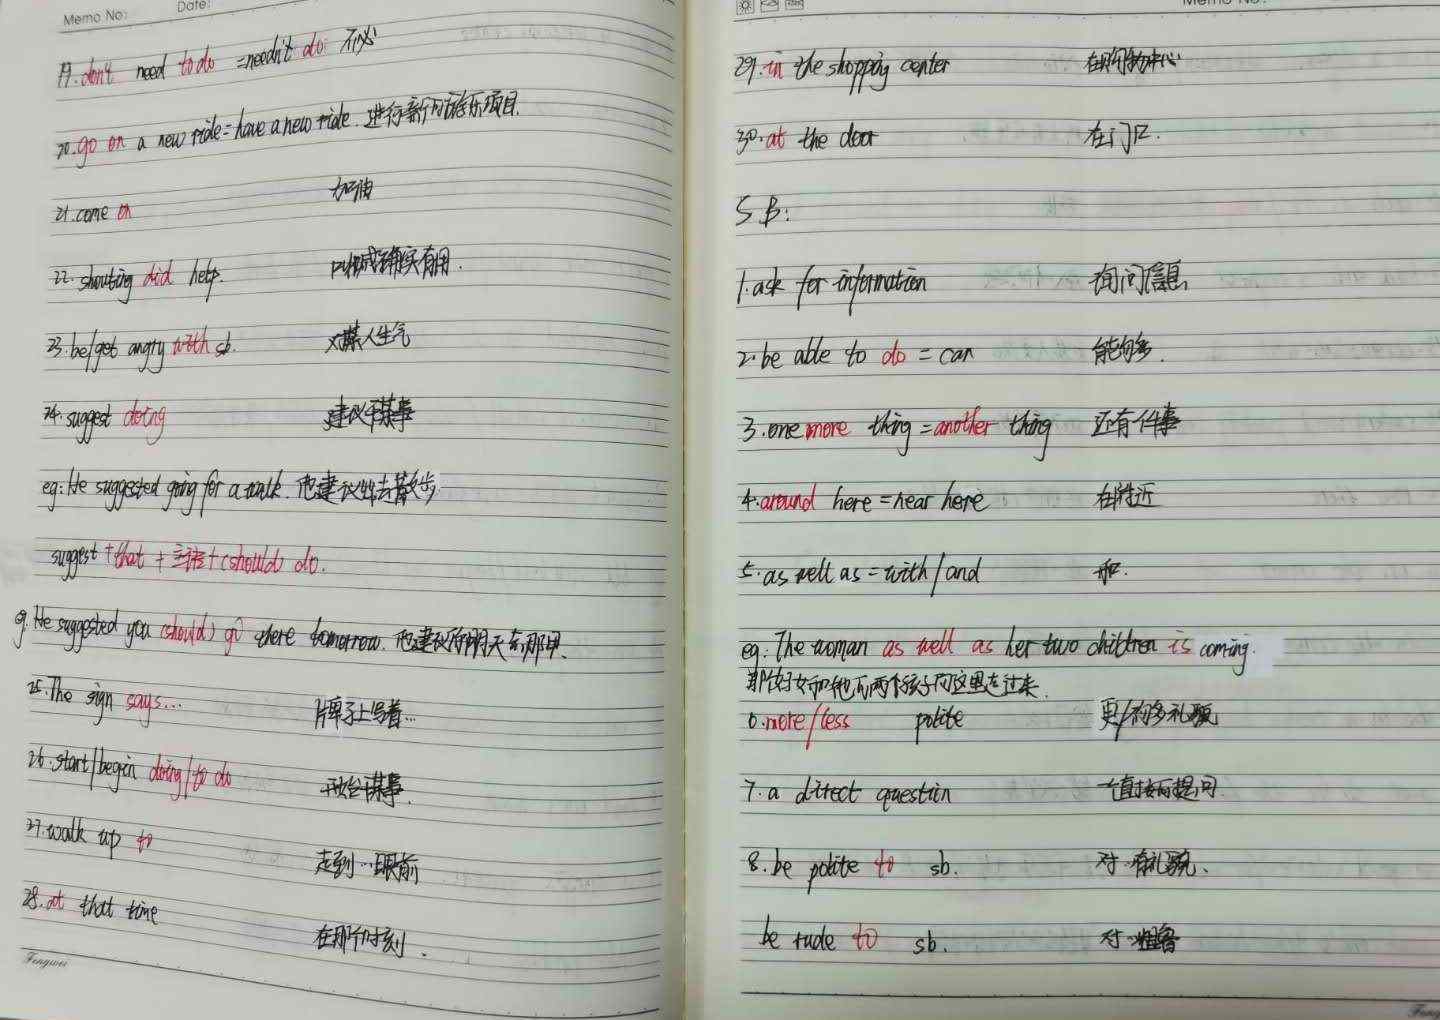 Memo No:
Date:
19.don't need to do =needn't do 不必
20.go on a new ride=have a new ride. 进行新的游乐项目.
21.come on 加油
22.shouting did help. 呼喊确实有用.
23.be/get angry with sb. 对某人生气
24.suggest doing 建议干某事
eg:He suggested going for a walk. 他建议出去散步
suggest+that+主语+(should) do.
eg.He suggested you (should) go there tomorrow. 他建议你明天去那里.
25.The sign says... 牌子上写着...
26.start/begin doing/to do 开始某事.
27.walk up to 走到…跟前
28.at that time 在那个时刻.
Fengwei
Memo No:
29.in the shopping center 在购物中心
30.at the door 在门口.
SB:
1.ask for information 询问信息
2.be able to do = can 能够.
3.one more thing =another thing 还有件事
4.around here =near here 在附近
5.as well as =with/and 和.
eg: The woman as well as her two children is coming.
那位妇女和她的两个孩子向这里走过来.
6.more/less polite 更/不多礼貌
7.a direct question 一个直接的提问
8.be polite to sb. 对…有礼貌.
be rude to sb. 对…粗鲁